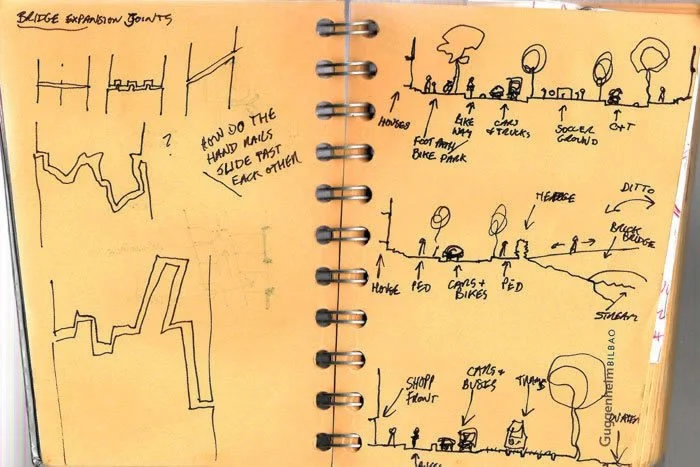 BRIDGE EXPANSION JOINTS
?
HOW DO THE
HAND RAILS
SLIDE PAST
EACH OTHER
HOUSES
FOOTPATH
BIKE PARK
BIKE
WAY
CARS
& TRUCKS
SOCCER
GROUND
C+T
HEDGE
DITTO
BRICK
BRIDGE
HOUSE
PED
CARS +
BIKES
PED
STREAM
SHOP
FRONT
CARS &
BUSES
TRAMS
Guggenheim BILBAO